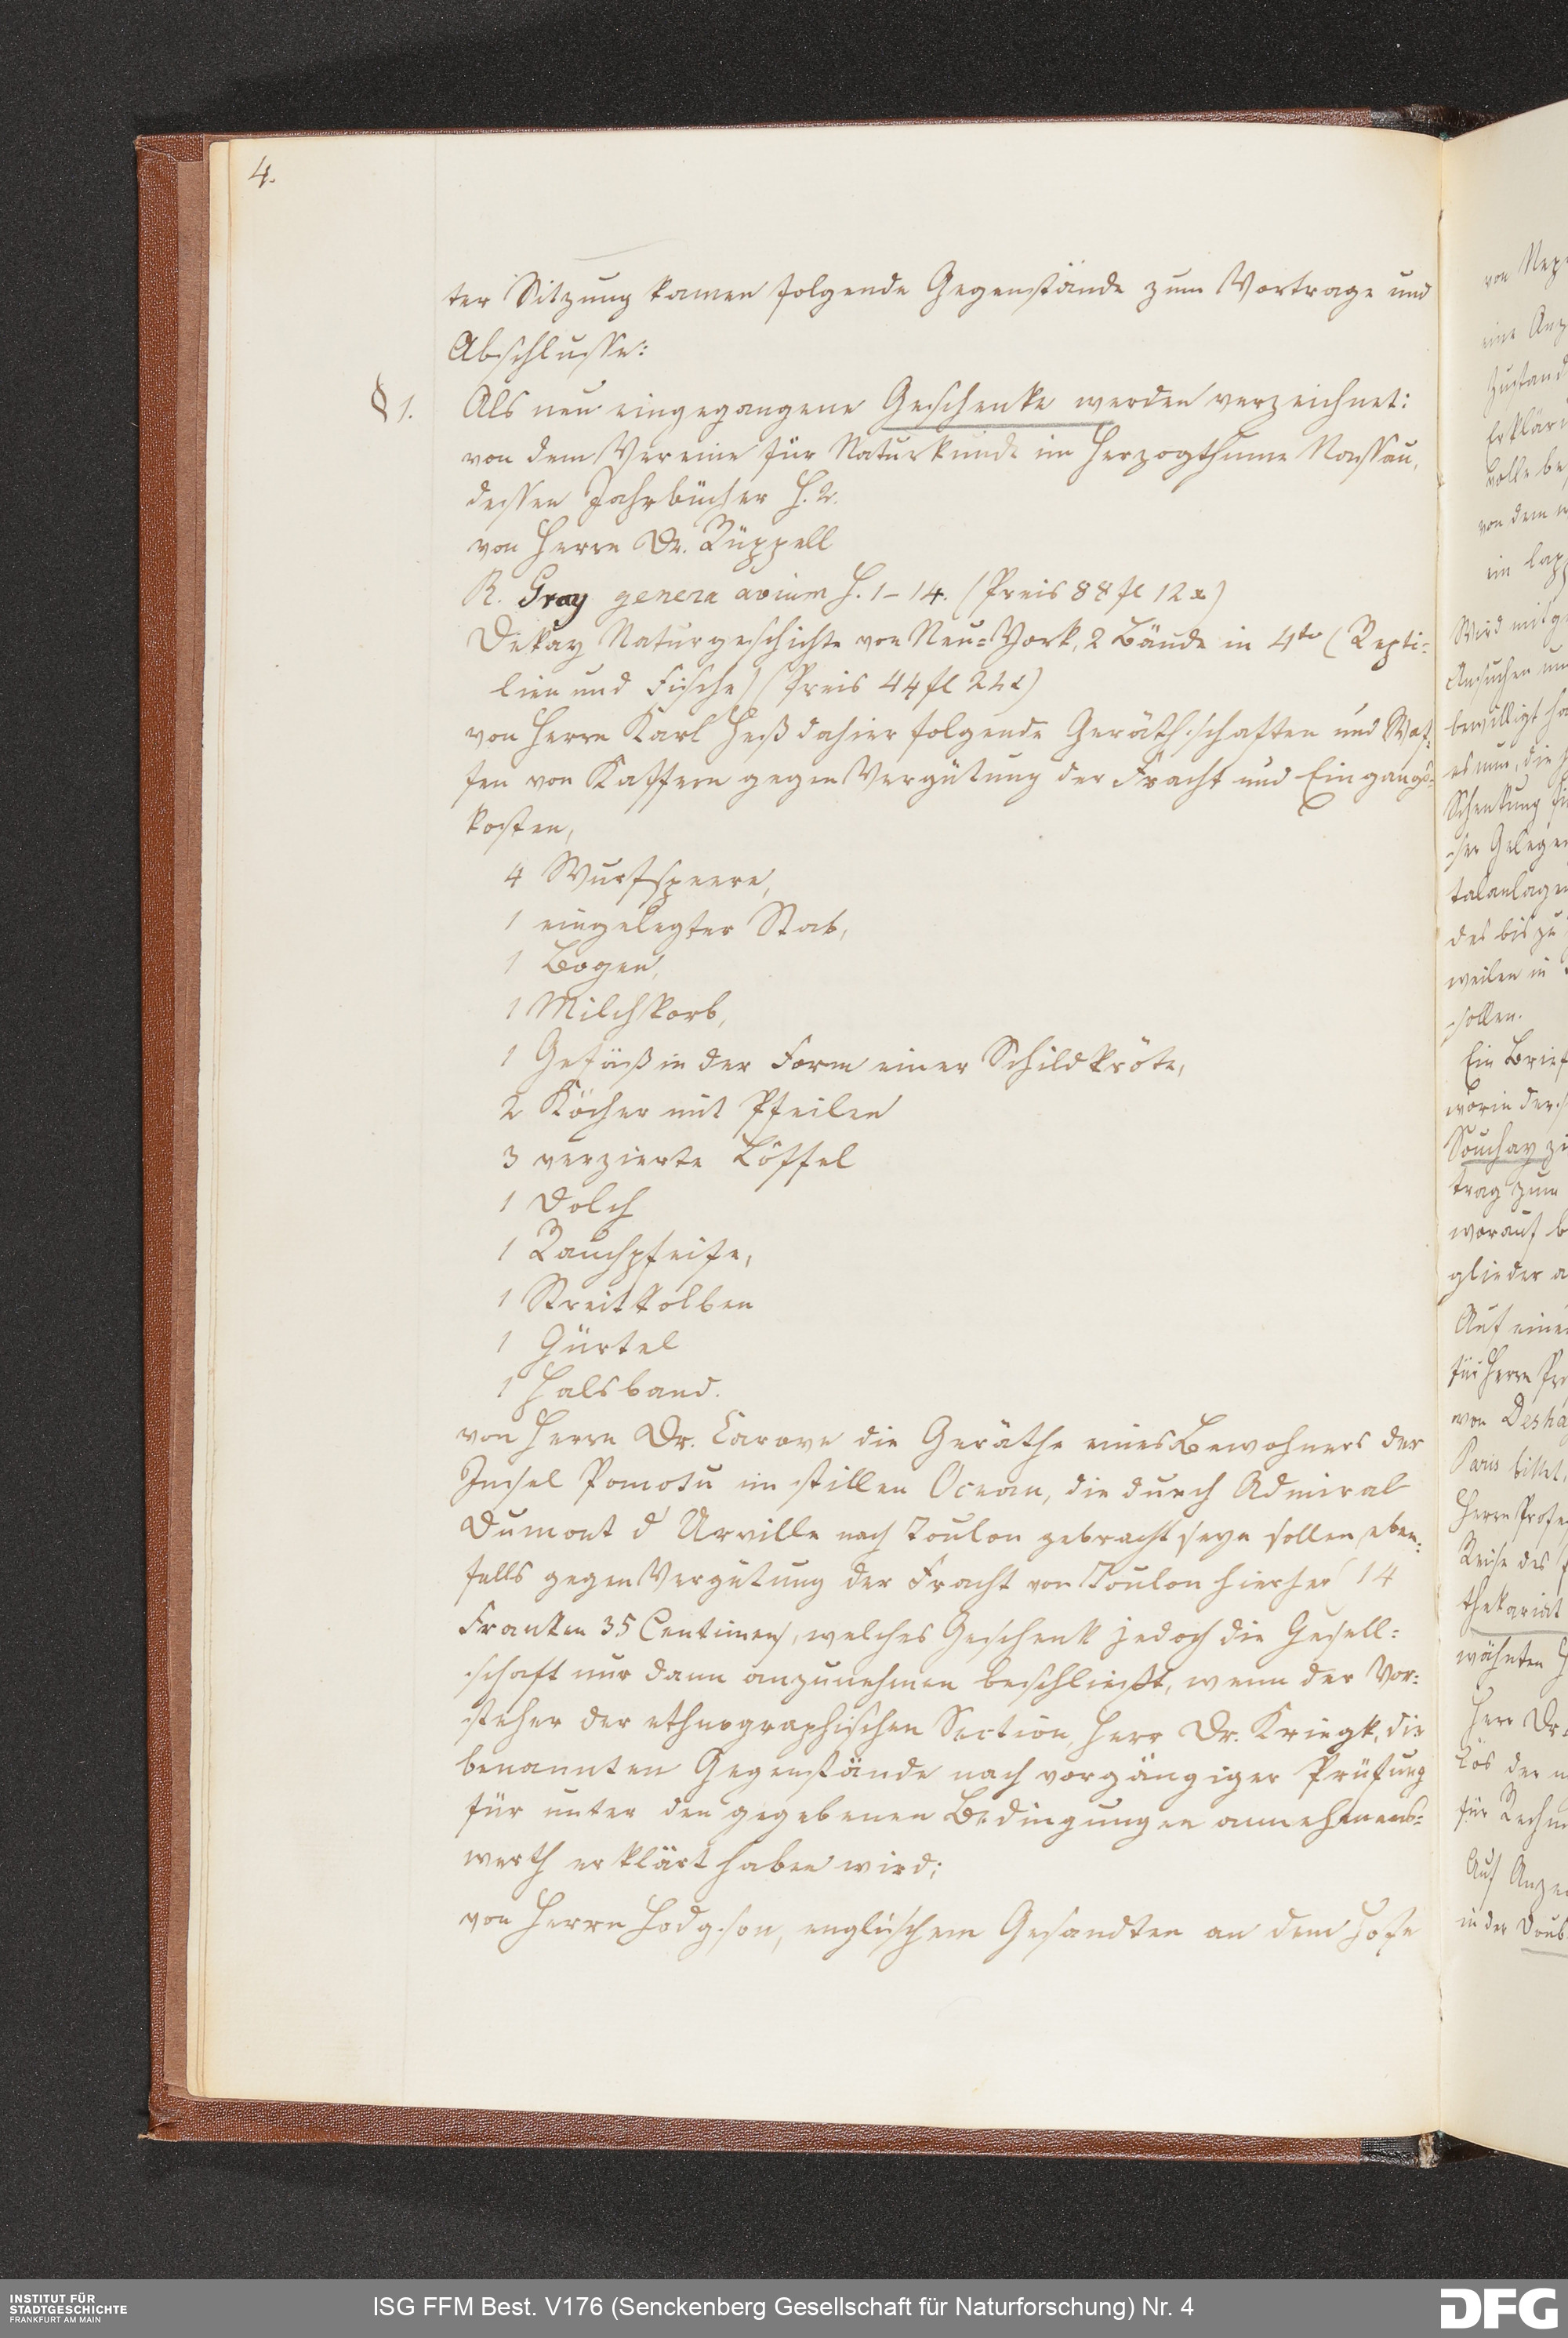 4.
ter Sitzung kamen folgende Gegenstände zum Vortrage und
Abschlusse:
§ 1. Als neu eingegangene Geschenke werden verzeichnet:
von dem Vereine für Naturkunde im Herzogthume Nassau,
dessen Jahrbücher H. 2.
von Herrn Dr. Rüppell
R. Gray genera avium H. 1–14. (Preis 88 fl 12 x)
Dekay Naturgeschichte von Neu=York, 2 Bände in 4to (Repti=
lien und Fische) (Preis 44 fl 24 x)
von Herrn Karl Heß dahier folgende Geräthschaften und Waf=
fen von Kaffern gegen Vergütung der Fracht und Eingangs=
kosten,
4 Wurfspeere,
1 eingelegter Stab,
1 Bogen,
1 Milchkorb,
1 Gefäß in der Form einer Schildkröte,
2 Köcher mit Pfeilen
3 verzierte Löffel
1 Dolch
1 Rauchpfeife,
1 Streitkolben
1 Gürtel
1 Halsband.
von Herrn Dr. Carove die Geräthe eines Bewohners der
Insel Pomotu im stillen Ocean, die durch Admiral
Dumont d'Urville nach Toulon gebracht seyn sollen, eben=
falls gegen Vergütung der Fracht von Toulon hierher (14
Franken 35 Centimen), welches Geschenk jedoch die Gesell=
schaft nur dann anzunehmen beschließt, wenn der Vor=
steher der ethnographischen Section, Herr Dr. Kriegk, die
benannten Gegenstände nach vorgängiger Prüfung
für unter den gegebenen Bedingungen annehmens=
werth erklärt haben wird;
von Herrn Hodgson, englischem Gesandten an dem Hofe
von
eine
von dem
Wird
Ansuchen
bewilligt
es nun, die
Schenkung
talanlagen
des bis zu
weilen in
sollen.
Ein Brief
worin
Souchay
trag zum
worauf
glieder
Auf
für Herrn
von
Paris bittet,
Herrn
Reise des
wähnten
Herr Dr.
für
Auf
in der
INSTITUT FÜR
STADTGESCHICHTE
FRANKFURT AM MAIN
ISG FFM Best. V176 (Senckenberg Gesellschaft für Naturforschung) Nr. 4
DFG